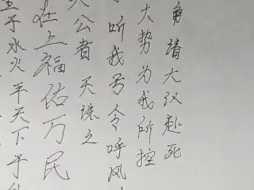 请大汉赴死
大势为我所控
听我号令呼风
公者天诛之
在上福佑万民
子水火平天下于